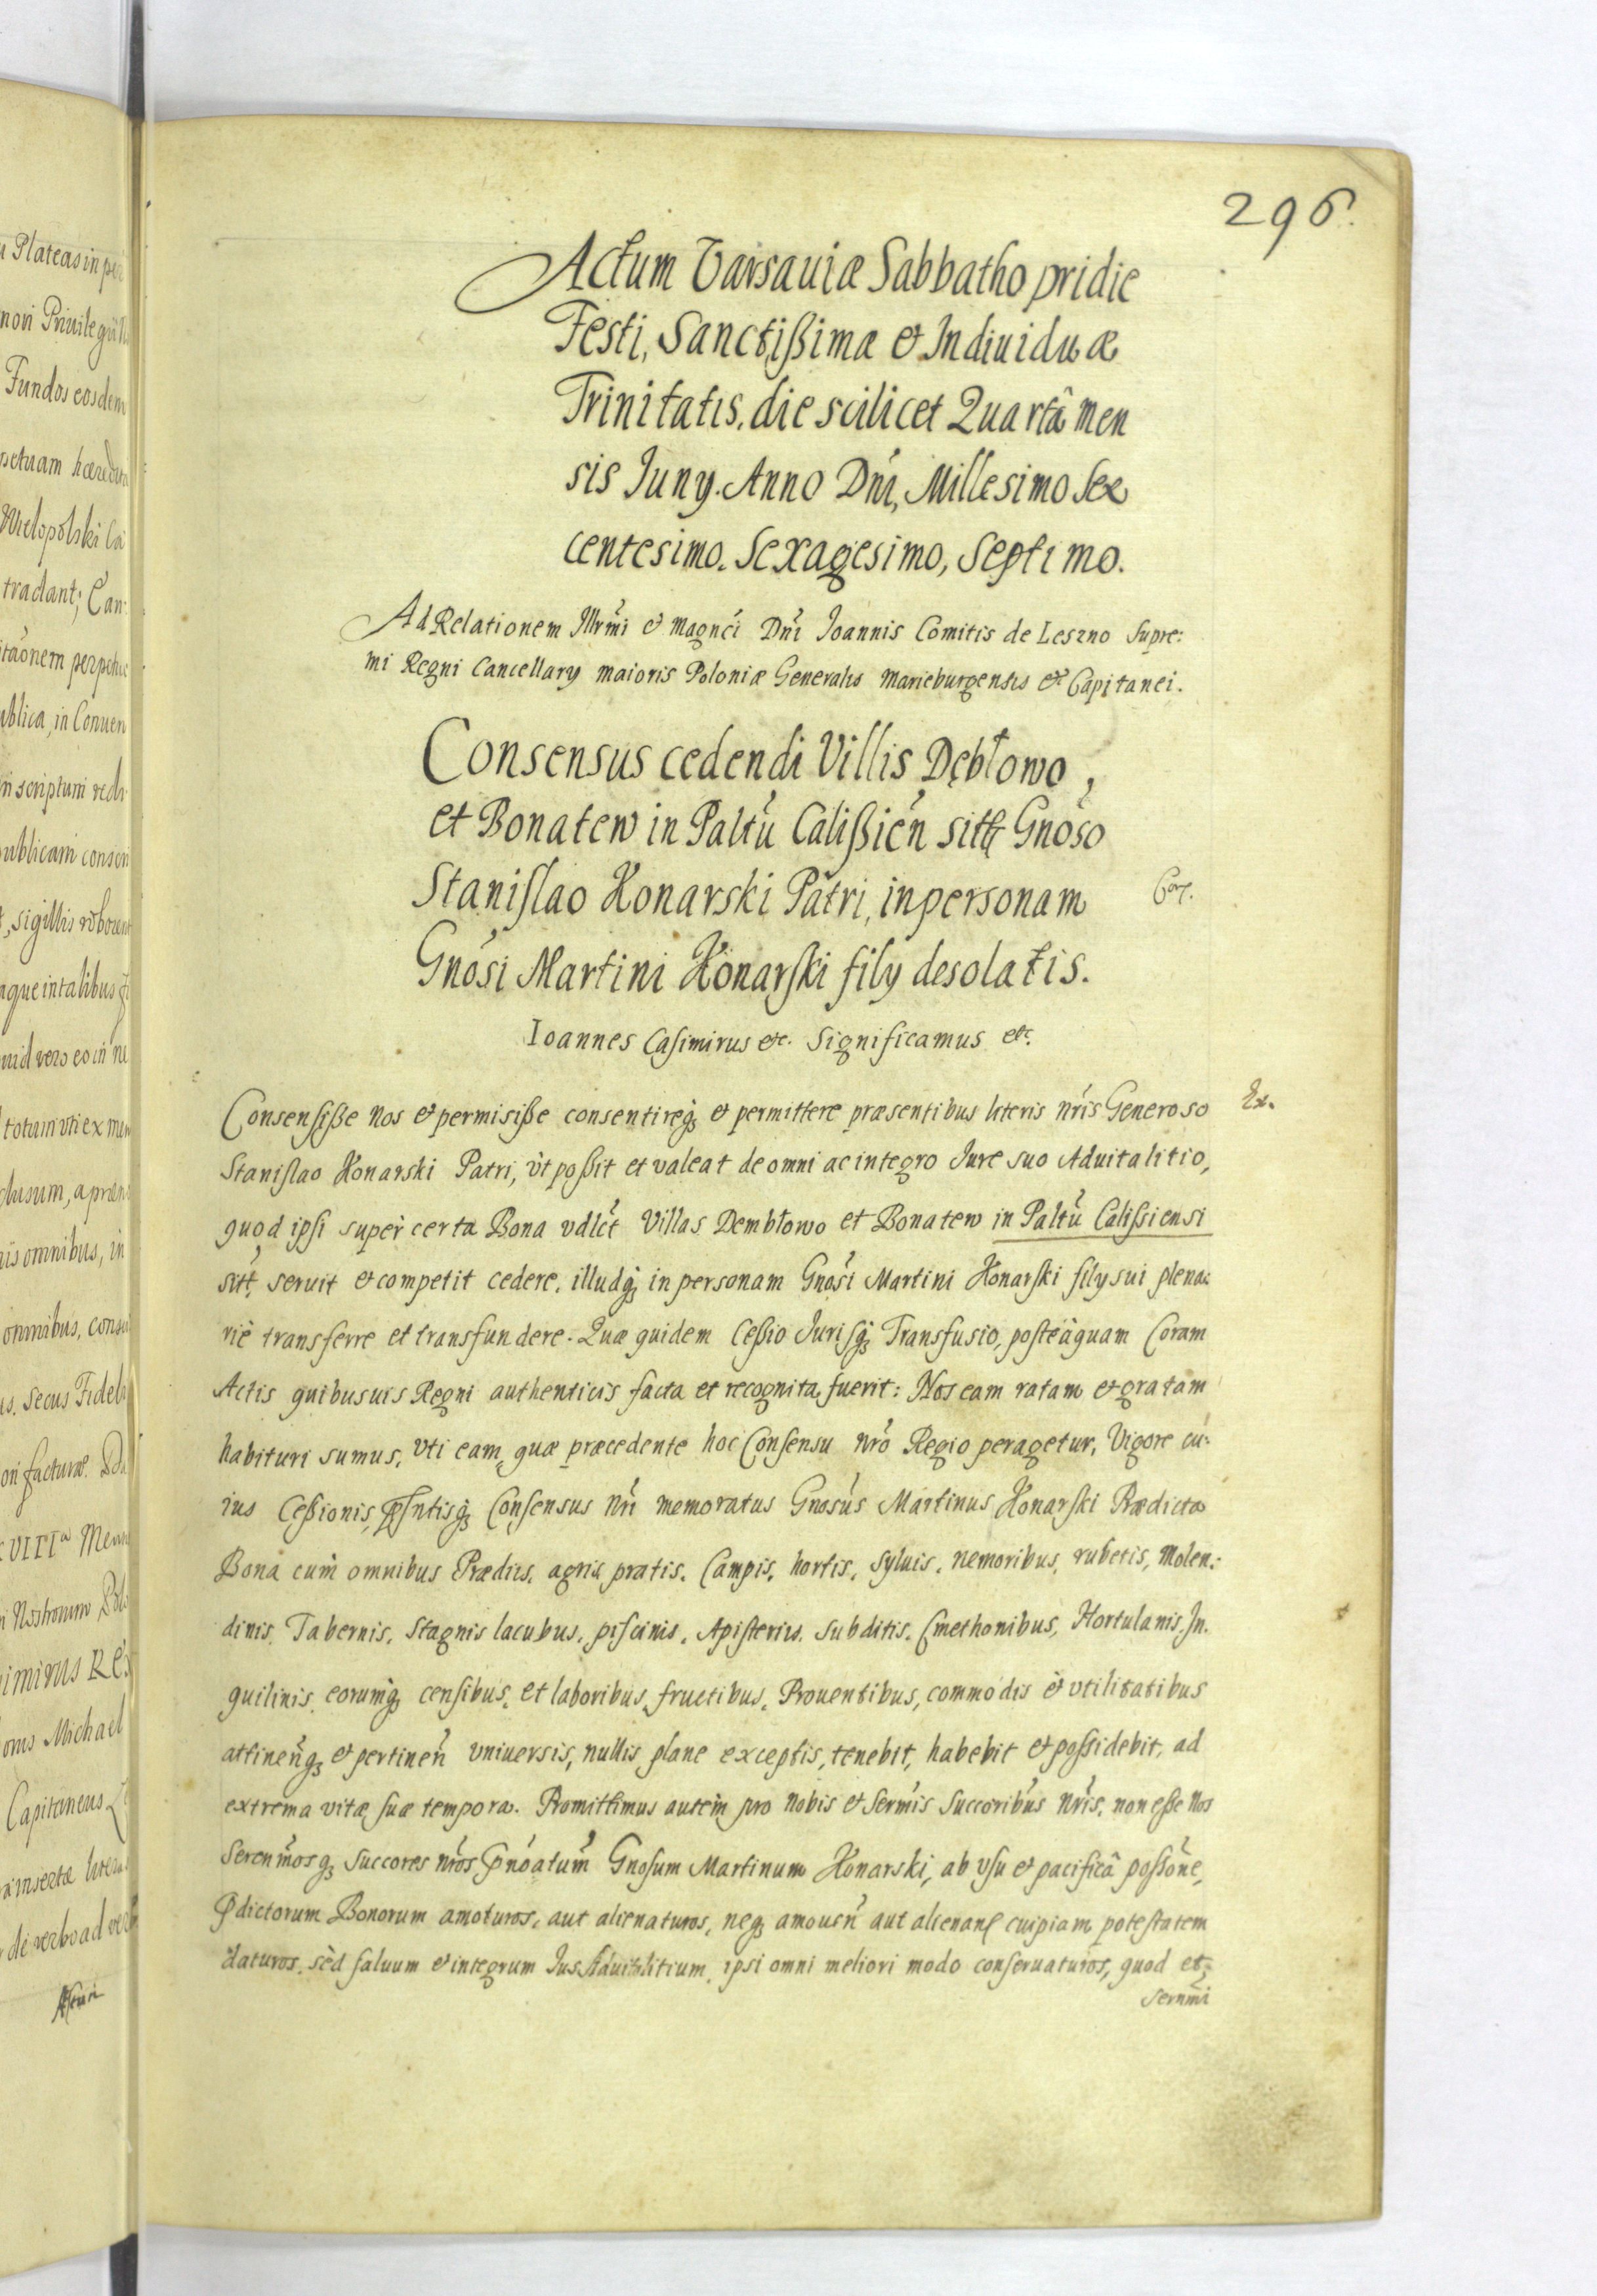 296.
Actum Varsauiæ Sabbatho pridie
Festi, Sanctißimæ et Indiuiduæ
Trinitatis, die scilicet Quartâ men
sis Juny. Anno Dni, Millesimo Sex
centesimo. Sexagesimo, Septimo.
Ad Relationem Illrmi et Magnci Dni Joannis Comitis de Leszno Supre:
mi Regni Cancellary maioris Poloniæ Generalis Marieburgensis etc Capitanei.
Consensus cedendi Villis Dębłowo,
et Bonatew in Paltu Calißien sitt Gnoso
Stanislao Konarski Patri, in personam
Gnosi Martini Konarski fily desolatis.
Ioannes Casimirus etc. Significamus etc.
Ex.
Consensiße Nos et permisiße consentireq et permittere præsentibus literis nris Generoso
Stanislao Konarski Patri, vt poßit et valeat de omni ac integro Jure suo Aduitalitio,
quod ipsi super certa Bona vdlct Villas Dembłowo et Bonatew in Paltu Calißiensi
sitt, seruit et competit cedere, illudq in personam Gnosi Martini Konarski fily sui plena:
riè transferre et transfundere. Quæ quidem Ceßio Jurisq Transfusio, posteaquam Coram
Actis quibusuis Regni authenticis facta et recognita fuerit: Nos eam ratam et gratam
habituri sumus, vti eam, quæ præcedente hoc Consensu nro Regio peragetur, Vigore cu:
ius Ceßionis, psntisq Consensus nri memoratus Gnosus Martinus Konarski Prædicta
Bona cum omnibus Prædiis, agris, pratis, Campis, hortis, syluis, nemoribus, rubetis, Molen:
dinis, Tabernis, Stagnis lacubus, piscinis, Apisterius, subditis, Cmethonibus, Hortulanis, In.
quilinis, eorumq censibus, et laboribus, fructibus, Prouentibus, commodis et vtilitatibus
attinenq et pertinen vniuersis, nullis plane exceptis, tenebit, habebit et possidebit, ad
extrema vitæ suæ tempora. Promittimus autem pro nobis et Sermis Succoribus nris, non eße Nos
Serenmosq Succores nros, pnoatum Gnosum Martinum Konarski, ab vsu et pacificâ possone,
pdictorum Bonorum amoturos, aut alienaturos, neq amouen aut alienan cuipiam potestatem
daturos, sed saluum et integrum Jus Aduitalitium, ipsi omni meliori modo conseruaturos, quod et
sernmi